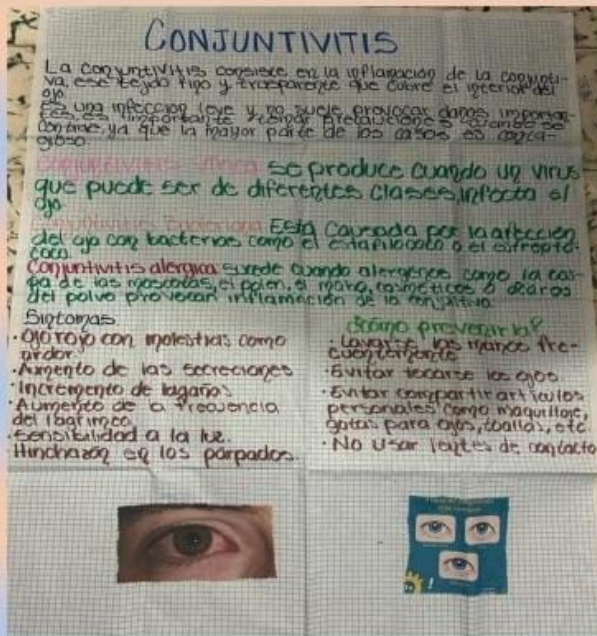 CONJUNTIVITIS
La conjuntivitis consiste en la inflamación de la conjunti-
va, ese tejido fino y trasparente que cubre el interior del
ojo.
Es una infección leve y no suele provocar daños importan-
tes, es importante tomar precauciones cuando se
contrae, ya que la mayor parte de los casos es conta-
gioso.
Conjuntivitis Vírica se produce cuando un virus
que puede ser de diferentes clases, infecta el
ojo.
Conjuntivitis Bacteriana Está causada por la afección
del ojo con bacterias como el estafilococo o el estrepto-
coco.
Conjuntivitis alérgica sucede cuando alergenos como la cas-
pa de las mascotas, el polen, el moho, cosméticos o ácaros
del polvo provocan inflamación de la conjuntiva.
Síntomas
· Ojo rojo con molestias como
ardor.
· Aumento de las secreciones
· Incremento de lagañas
· Aumento de a frecuencia
del lagrimeo.
· Sensibilidad a la luz.
· Hinchazón en los parpados.
¿Cómo prevenirla?
· Lavarse las manos fre-
cuentemente
· Evitar tocarse los ojos.
· Evitar compartir artículos
personales como maquillaje,
gotas para ojos, toallas, etc.
· No usar lentes de contacto